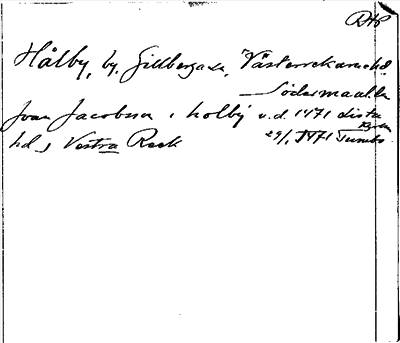 RAP
Hålby, by, Gillberga sn, Västerrekarne hd.
Södermanl. län
Joan Jacobsson i holby v.d. 1471 dista
hd, Vestra Reck 29/1 1471 Tumbo